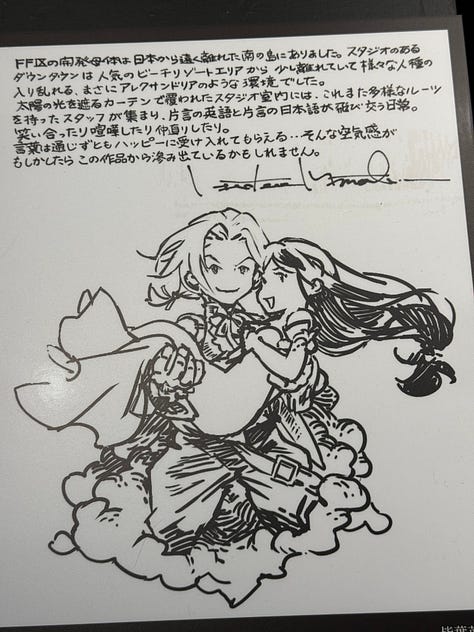 FFIXの開発母体は日本から遠く離れた南の島にありました。スタジオのある
ダウンタウンは人気のビーチリゾートエリアから少し離れていて様々な人種の
入り乱れる、まさにアレクサンドリアのような環境でした。
太陽の光を遮るカーテンで覆われたスタジオ室内には、これまた多様なルーツ
を持ったスタッフが集まり、片言の英語と片言の日本語が飛び交う日常。
笑い合ったり喧嘩したり仲直りしたり。
言葉は通じずともハッピーに受け入れてもらえる…そんな空気感が
もしかしたらこの作品から滲み出ているかもしれません。